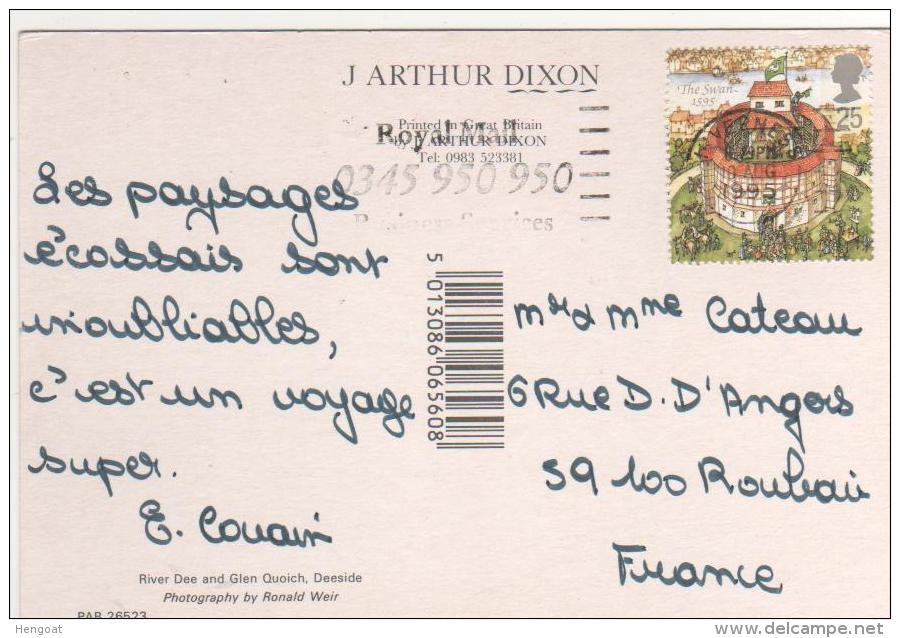 J ARTHUR DIXON
Printed in Great Britain
by J ARTHUR DIXON
Tel: 0983 523381
Royal Mail
0345 950 950
Business Services
The Swan
1595
25
1995
Les paysages
écossais sont
inoubliables,
c'est un voyage
super.
E. Couain
5 013086 065608
Mr & Mme Cateau
6 Rue D. D'Angers
59100 Roubaix
France
River Dee and Glen Quoich, Deeside
Photography by Ronald Weir
PAB 26523
Hengoat
delcampe.net